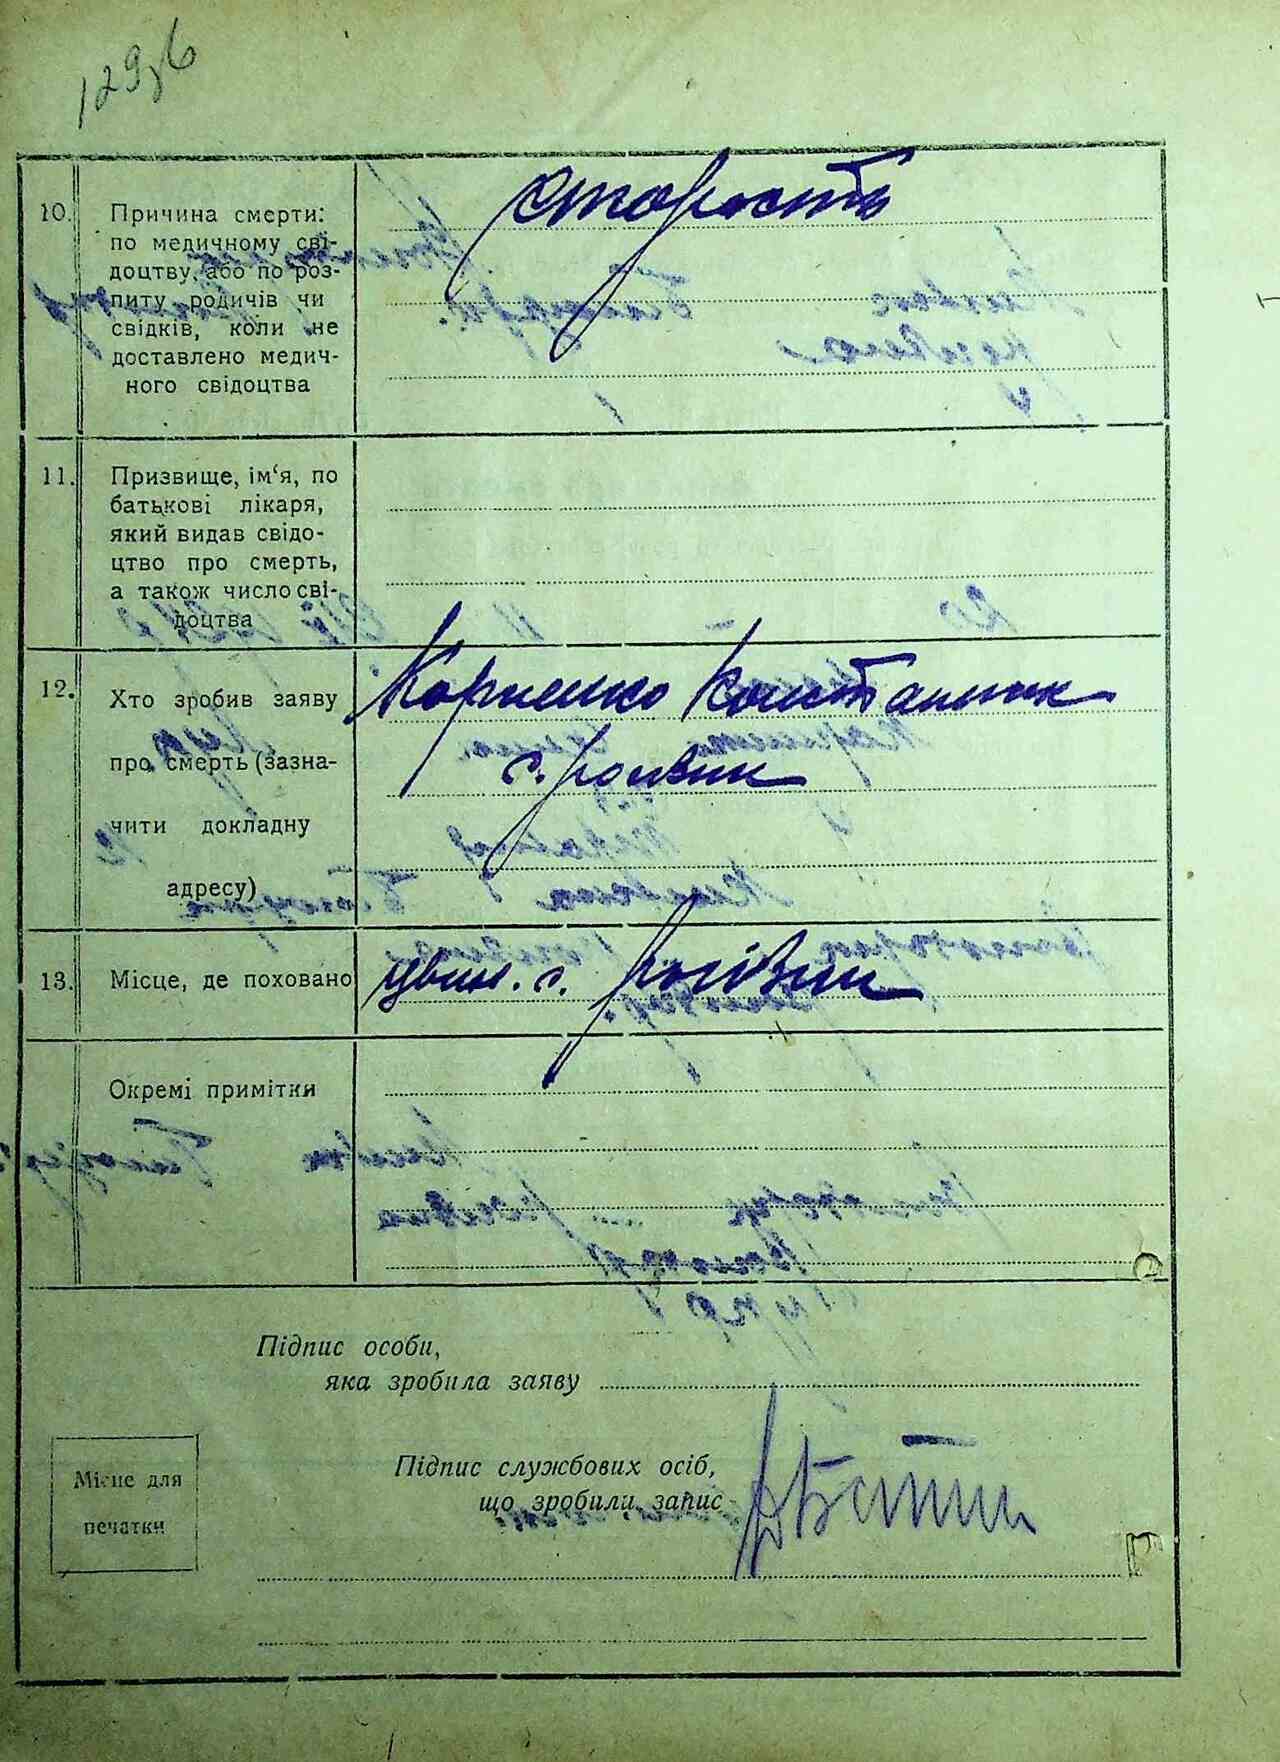 129зб
10. Причина смерти:
по медичному сві-
доцтву, або по роз-
питу родичів чи
свідків, коли не
доставлено медич-
ного свідоцтва
старость
11. Призвище, ім‘я, по
батькові лікаря,
який видав свідо-
цтво про смерть,
а також число сві-
доцтва
12. Хто зробив заяву
про смерть (зазна-
чити докладну
адресу)
Корниенко Константин
с.
13. Місце, де поховано
цвин. с.
Окремі примітки
Підпис особи,
яка зробила заяву
Підпис службових осіб,
що зробили запис
Місце для
печатки